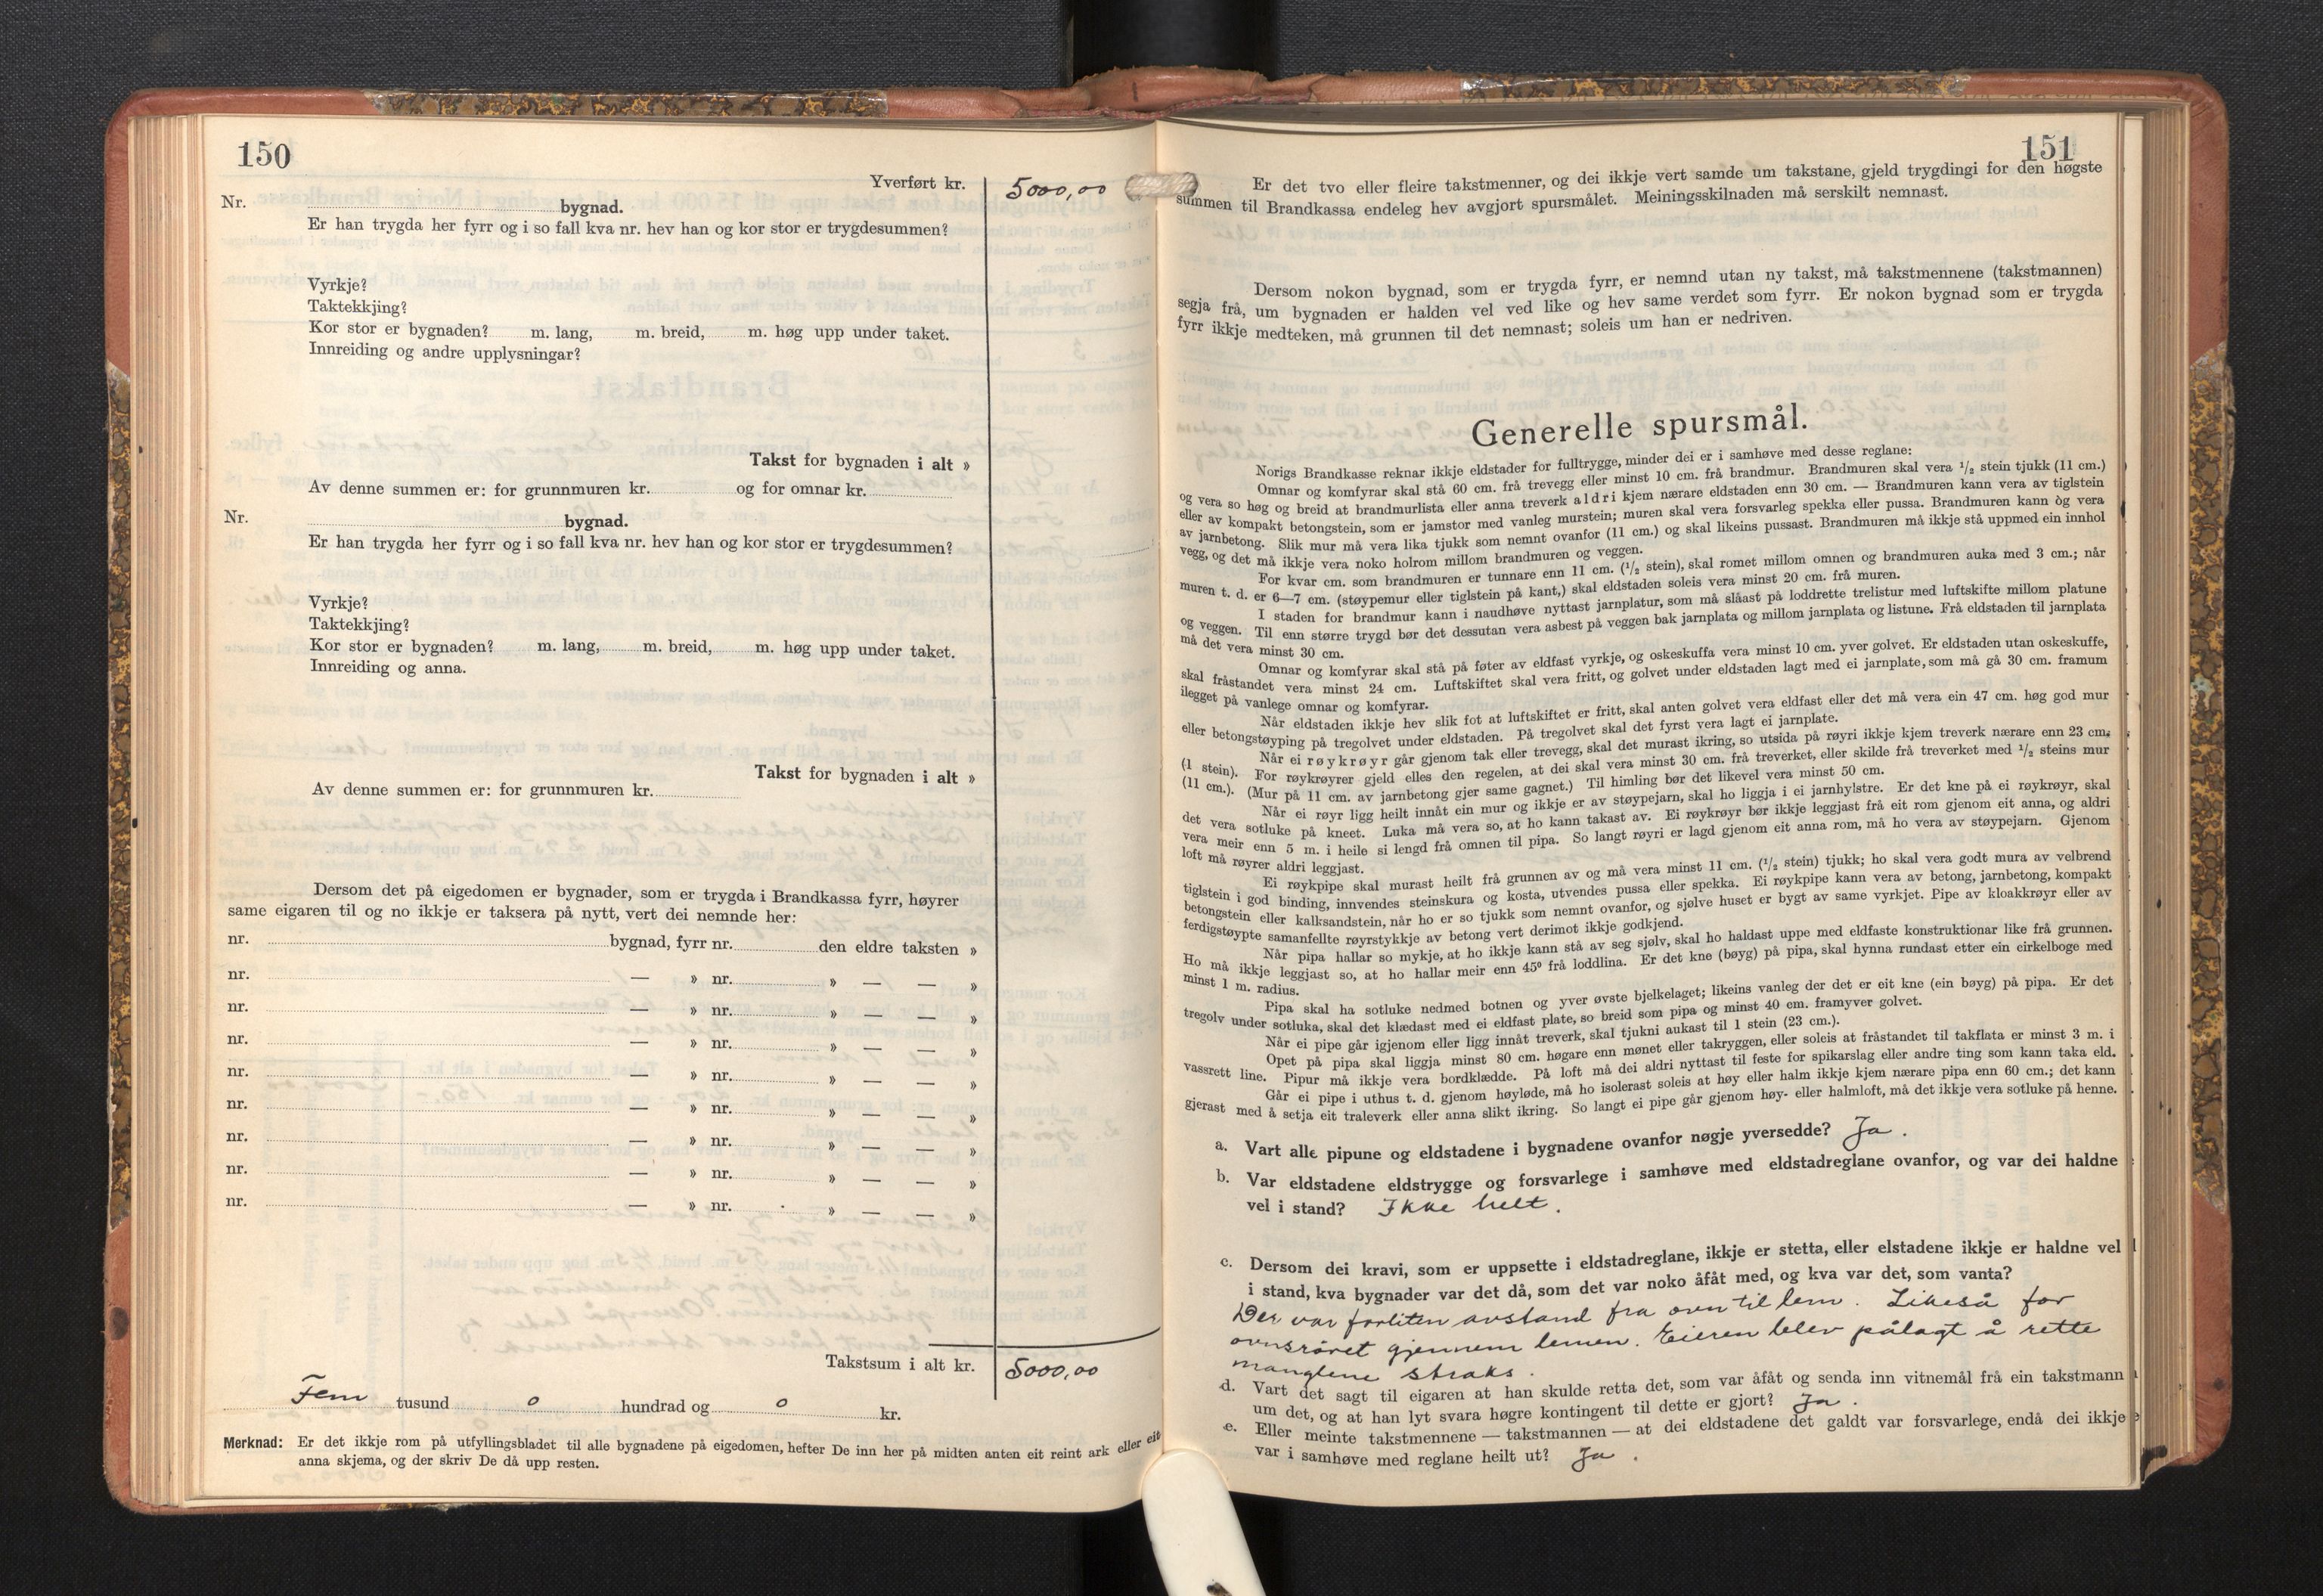 150
Yverført kr. 5000,00
Nr. bygnad.
Er han trygda her fyrr og i so fall kva nr. hev han og kor stor er trygdesummen?
Vyrkje?
Taktekkjing?
Kor stor er bygnaden? m. lang, m. breid, m. høg upp under taket.
Innreiding og andre upplysningar?
Takst for bygnaden i alt »
Av denne summen er: for grunnmuren kr. og for omnar kr.
Nr. bygnad.
Er han trygda her fyrr og i so fall kva nr. hev han og kor stor er trygdesummen?
Vyrkje?
Taktekkjing?
Kor stor er bygnaden? m. lang, m. breid, m. høg upp under taket.
Innreiding og anna.
Takst for bygnaden i alt »
Av denne summen er: for grunnmuren kr.
Dersom det på eigedomen er bygnader, som er trygda i Brandkassa fyrr, høyrer
same eigaren til og no ikkje er taksera på nytt, vert dei nemnde her:
nr. bygnad, fyrr nr. den eldre taksten »
nr. — » nr. » — — »
nr. — » nr. » — — »
nr. — » nr. » — — »
nr. — » nr. » — — »
nr. — » nr. » — — »
nr. — » nr. » — — »
nr. — » nr. » — — »
nr. — » nr. » — — »
Takstsum i alt kr. 5000,00
Fem tusund 0 hundrad og 0 kr.
Merknad: Er det ikkje rom på utfyllingsbladet til alle bygnadene på eigedomen, hefter De inn her på midten anten eit reint ark eller eit
anna skjema, og der skriv De då upp resten.
151
Er det tvo eller fleire takstmenner, og dei ikkje vert samde um takstane, gjeld trygdingi for den høgste
summen til Brandkassa endeleg hev avgjort spursmålet. Meiningsskilnaden må serskilt nemnast.
Dersom nokon bygnad, som er trygda fyrr, er nemnd utan ny takst, må takstmennene (takstmannen)
segja frå, um bygnaden er halden vel ved like og hev same verdet som fyrr. Er nokon bygnad som er trygda
fyrr ikkje medteken, må grunnen til det nemnast; soleis um han er nedriven.
Generelle spursmål.
Norigs Brandkasse reknar ikkje eldstader for fulltrygge, minder dei er i samhøve med desse reglane:
Omnar og komfyrar skal stå 60 cm. frå trevegg eller minst 10 cm. frå brandmur. Brandmuren skal vera 1/2 stein tjukk (11 cm.)
og vera so høg og breid at brandmurlista eller anna treverk aldri kjem nærare eldstaden enn 30 cm. — Brandmuren kann vera av tiglstein
eller av kompakt betongstein, som er jamstor med vanleg murstein; muren skal vera forsvarleg spekka eller pussa. Brandmuren kann òg vera
av jarnbetong. Slik mur må vera lika tjukk som nemnt ovanfor (11 cm.) og skal likeins pussast. Brandmuren må ikkje stå uppmed ein innhol
vegg, og det må ikkje vera noko holrom millom brandmuren og veggen.
For kvar cm. som brandmuren er tunnare enn 11 cm. (1/2 stein), skal romet millom omnen og brandmuren auka med 3 cm.; når
muren t. d. er 6—7 cm. (støypemur eller tiglstein på kant,) skal eldstaden soleis vera minst 20 cm. frå muren.
I staden for brandmur kann i naudhøve nyttast jarnplatur, som må slåast på loddrette trelistur med luftskifte millom platune
og veggen. Til enn større trygd bør det dessutan vera asbest på veggen bak jarnplata og millom jarnplata og listune. Frå eldstaden til jarnplata
må det vera minst 30 cm.
Omnar og komfyrar skal stå på føter av eldfast vyrkje, og oskeskuffa vera minst 10 cm. yver golvet. Er eldstaden utan oskeskuffe,
skal fråstandet vera minst 24 cm. Luftskiftet skal vera fritt, og golvet under eldstaden lagt med ei jarnplate, som må gå 30 cm. framum
ilegget på vanlege omnar og komfyrar.
Når eldstaden ikkje hev slik fot at luftskiftet er fritt, skal anten golvet vera eldfast eller det må vera ein 47 cm. høg god mur
eller betongstøyping på tregolvet under eldstaden. På tregolvet skal det fyrst vera lagt ei jarnplate.
Når ei røykrøyr går gjenom tak eller trevegg, skal det murast ikring, so utsida på røyri ikkje kjem treverk nærare enn 23 cm.
(1 stein). For røykrøyrer gjeld elles den regelen, at dei skal vera minst 30 cm. frå treverket, eller skilde frå treverket med 1/2 steins mur
(11 cm.). (Mur på 11 cm. av jarnbetong gjer same gagnet.) Til himling bør det likevel vera minst 50 cm.
Når ei røyr ligg heilt innåt ein mur og ikkje er av støypejarn, skal ho liggja i ei jarnhylstre. Er det kne på ei røykrøyr, skal
det vera sotluke på kneet. Luka må vera so, at ho kann takast av. Ei røykrøyr bør ikkje leggjast frå eit rom gjenom eit anna, og aldri
vera meir enn 5 m. i heile si lengd frå omnen til pipa. So langt røyri er lagd gjenom eit anna rom, må ho vera av støypejarn. Gjenom
loft må røyrer aldri leggjast.
Ei røykpipe skal murast heilt frå grunnen av og må vera minst 11 cm. (1/2 stein) tjukk; ho skal vera godt mura av velbrend
tiglstein i god binding, innvendes steinskura og kosta, utvendes pussa eller spekka. Ei røykpipe kann vera av betong, jarnbetong, kompakt
betongstein eller kalksandstein, når ho er so tjukk som nemnt ovanfor, og sjølve huset er bygt av same vyrkjet. Pipe av kloakkrøyr eller av
ferdigstøypte samanfellte røyrstykkje av betong vert derimot ikkje godkjend.
Når pipa hallar so mykje, at ho ikkje kann stå av seg sjølv, skal ho haldast uppe med eldfaste konstruktionar like frå grunnen.
Ho må ikkje leggjast so, at ho hallar meir enn 45° frå loddlina. Er det kne (bøyg) på pipa, skal hynna rundast etter ein cirkelboge med
minst 1 m. radius.
Pipa skal ha sotluke nedmed botnen og yver øvste bjelkelaget; likeins vanleg der det er eit kne (ein bøyg) på pipa. Er det
tregolv under sotluka, skal det klædast med ei eldfast plate, so breid som pipa og minst 40 cm. framyver golvet.
Når ei pipe går igjenom eller ligg innåt treverk, skal tjukni aukast til 1 stein (23 cm.).
Opet på pipa skal liggja minst 80 cm. høgare enn mønet eller takryggen, eller soleis at fråstandet til takflata er minst 3 m. i
vassrett line. Pipur må ikkje vera bordklædde. På loft må dei aldri nyttast til feste for spikarslag eller andre ting som kann taka eld.
Går ei pipe i uthus t. d. gjenom høyløde, må ho isolerast soleis at høy eller halm ikkje kjem nærare pipa enn 60 cm.; det kann
gjerast med å setja eit traleverk eller anna slikt ikring. So langt ei pipe går gjenom høy- eller halmloft, må det ikkje vera sotluke på henne.
a. Vart alle pipune og eldstadene i bygnadene ovanfor nøgje yversedde? Ja.
b. Var eldstadene eldstrygge og forsvarlege i samhøve med eldstadreglane ovanfor, og var dei haldne
vel i stand? Ikke helt.
c. Dersom dei kravi, som er uppsette i eldstadreglane, ikkje er stetta, eller elstadene ikkje er haldne vel
i stand, kva bygnader var det då, som det var noko åfåt med, og kva var det, som vanta?
Der var forliten avstand fra ovn til lem. Likeså for
ovnsröret gjennem lemen. Eieren blev pålagt å rette
manglene straks.
d. Vart det sagt til eigaren at han skulde retta det, som var åfåt og senda inn vitnemål frå ein takstmann
um det, og at han lyt svara høgre kontingent til dette er gjort? Ja.
e. Eller meinte takstmennene — takstmannen — at dei eldstadene det galdt var forsvarlege, endå dei ikkje
var i samhøve med reglane heilt ut? Ja.